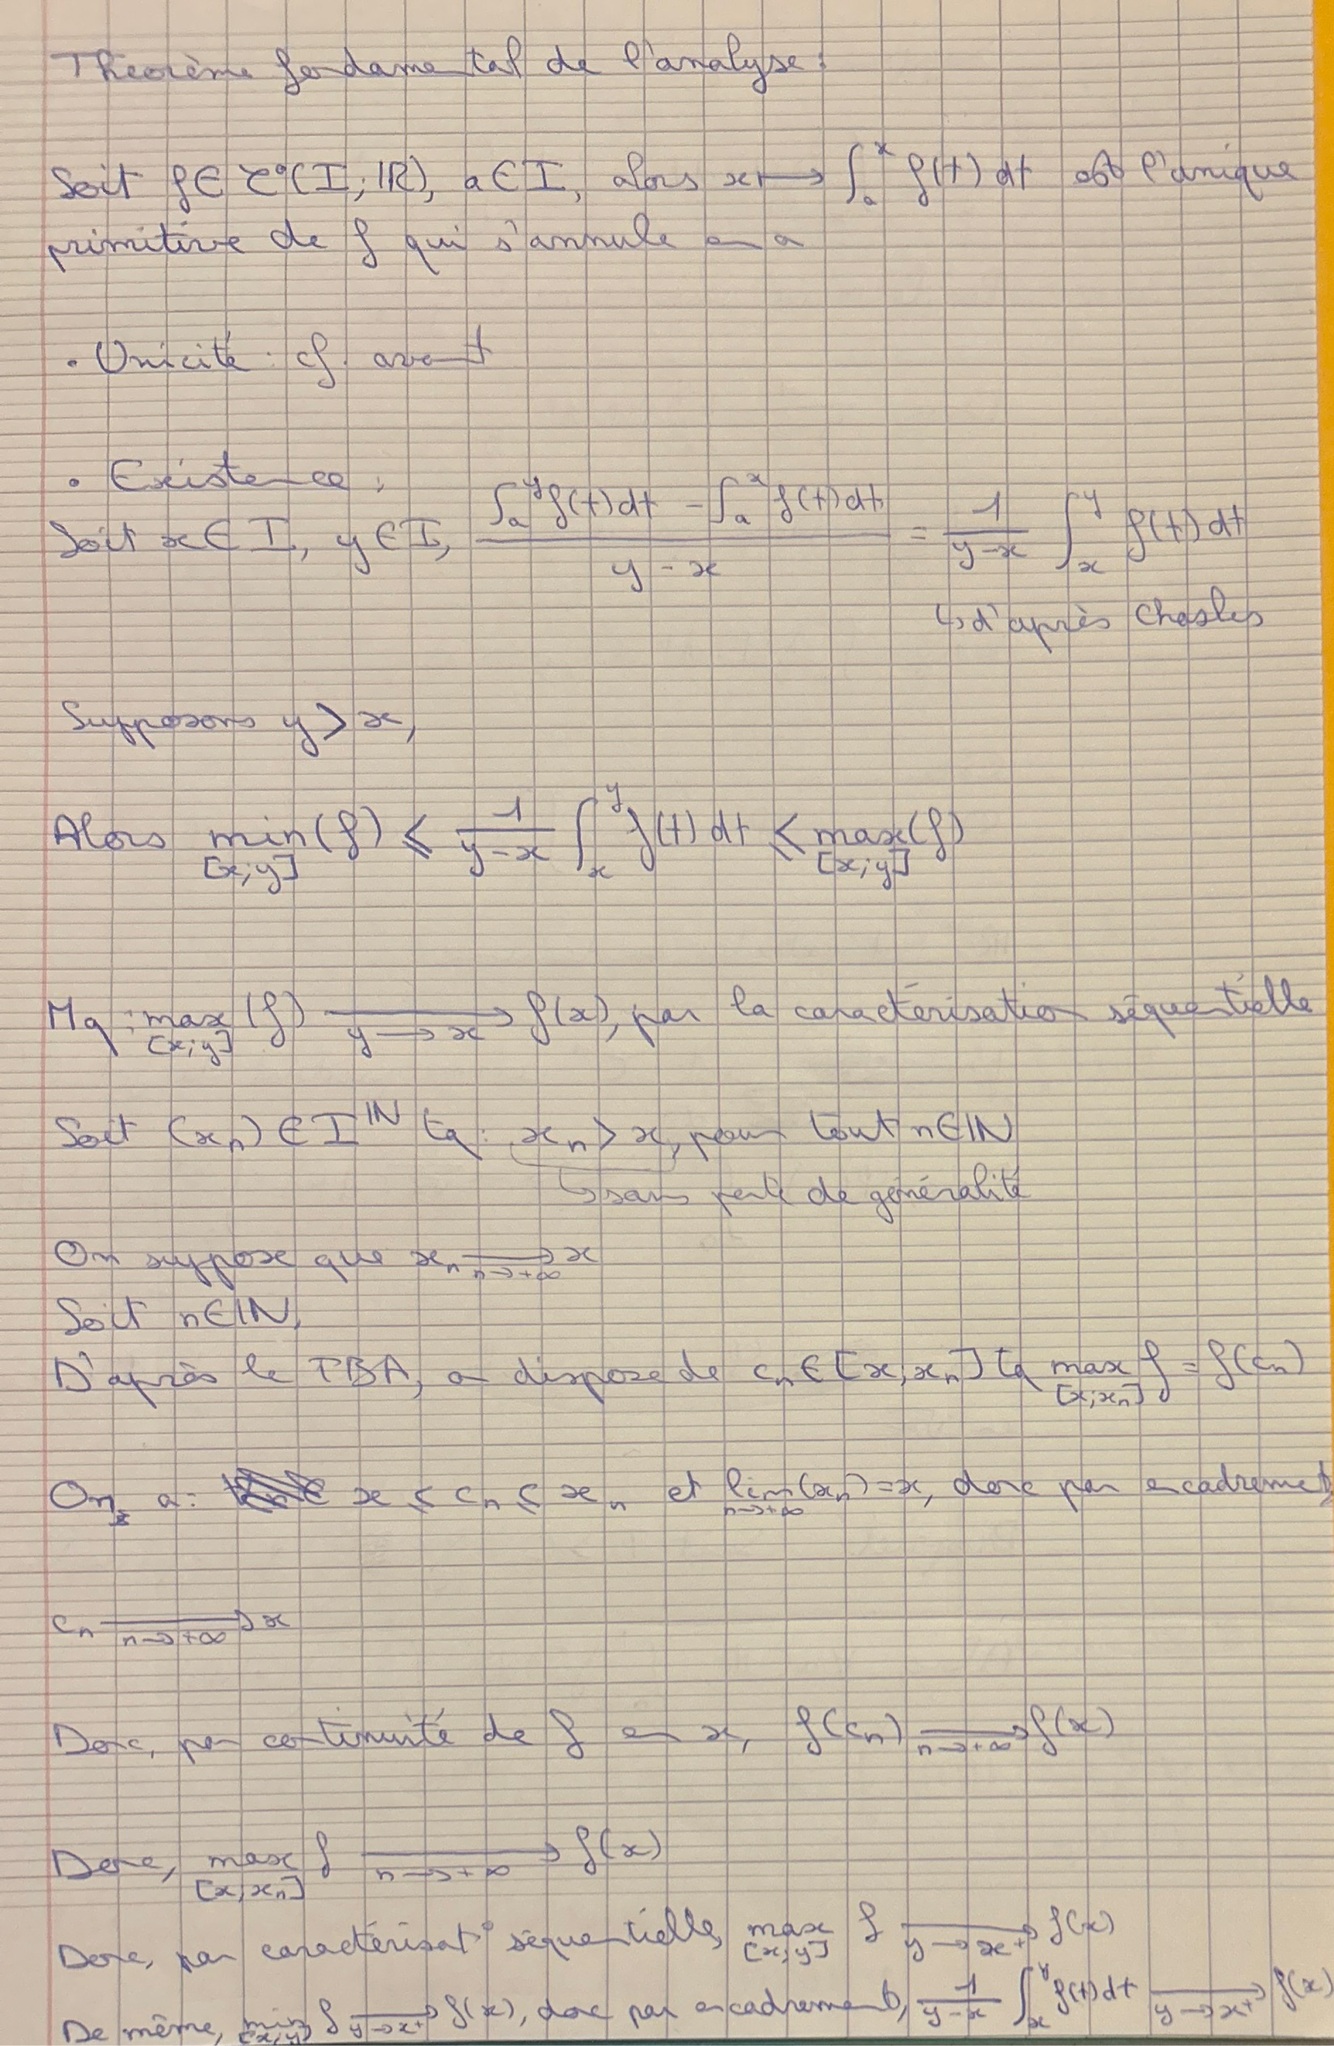 Théorème fondamental de l'analyse :
Soit f ∈ C⁰(I; ℝ), a ∈ I, alors x ↦ ∫ₐˣ f(t) dt est l'unique
primitive de f qui s'annule en a
• Unicité : cf. avant
• Existence :
Soit x ∈ I, y ∈ I, (∫ₐʸ f(t) dt − ∫ₐˣ f(t) dt) / (y − x) = 1/(y−x) ∫ₓʸ f(t) dt
↳ d'après Chasles
Supposons y > x,
Alors min_[x;y] (f) ≤ 1/(y−x) ∫ₓʸ f(t) dt ≤ max_[x;y] (f)
Mq : max_[x;y] (f) ⟶_{y→x} f(x), par la caractérisation séquentielle
Soit (xₙ) ∈ I^ℕ tq : xₙ > x, pour tout n ∈ ℕ
↳ sans perte de généralité
On suppose que xₙ ⟶_{n→+∞} x
Soit n ∈ ℕ,
D'après le TBA, on dispose de cₙ ∈ [x; xₙ] tq max_[x;xₙ] f = f(cₙ)
On a : x ≤ cₙ ≤ xₙ et lim_{n→+∞} (xₙ) = x, donc par encadrement,
cₙ ⟶_{n→+∞} x
Donc, par continuité de f en x, f(cₙ) ⟶_{n→+∞} f(x)
Donc, max_[x;xₙ] f ⟶_{n→+∞} f(x)
Donc, par caractérisat° séquentielle, max_[x;y] f ⟶_{y→x⁺} f(x)
De même, min_[x;y] f ⟶_{y→x⁺} f(x), donc par encadrement, 1/(y−x) ∫ₓʸ f(t) dt ⟶_{y→x⁺} f(x)